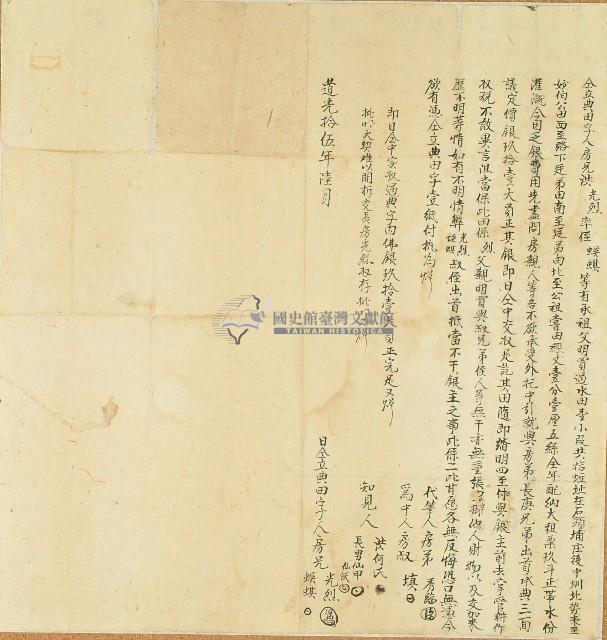 仝立典田字人房兄洪光烈率侄蜈蚣等有承祖父明買過水田壹小段共拾坵址在石頭埔庄後中圳北勢東至
妙伯公田西至路下廷弟田南至廷弟田北至公祖嘗田經丈壹分壹厘五絲全年配納大租粟玖斗正帶水份
灌溉今因乏銀費用先盡問房親人等各不欲承受外托中引就與房弟長庚兄弟出首承典三面
議定價銀玖拾壹大員正其銀即日仝中交收足訖其田隨即踏明四至付與銀主前去掌管耕作
收稅不敢異言滋當保此田係烈父親明買與叔兄弟侄人等無干亦無重張典掛他人財物以及交加來
歷不明等情如有不明情弊光烈蜈蚣叔侄出首抵當不干銀主之事此係二比甘愿各無反悔恐口無憑今
欲有憑仝立典田字壹紙付執為炤
即日仝中實收過典字內佛銀玖拾壹大員正完足又炤
批明大契難以開拆交長房光烈收存批炤
代筆人房弟秀臨
為中人房叔填
知見人洪何氏
長男仙甲
道光拾伍年陸月 日仝立典田字人房兄光烈
蜈蚣
國史館臺灣文獻館
TAIWAN HISTORICA